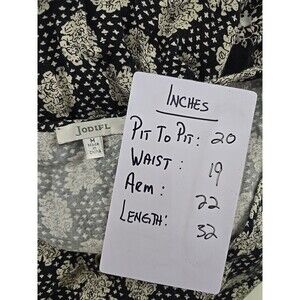 JODIFL
M
INCHES
PIT TO PIT: 20
WAIST: 19
ARM: 22
LENGTH: 32